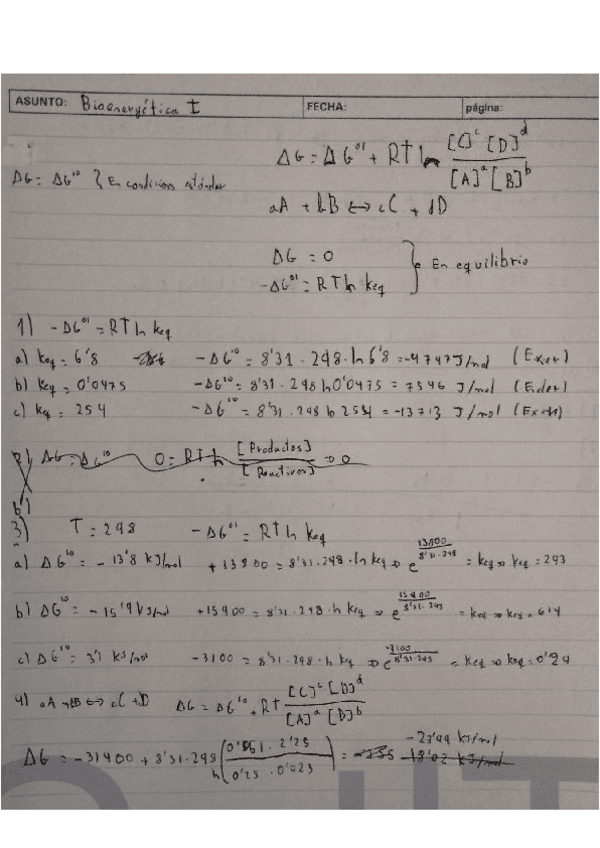 ASUNTO: Bioenergética I FECHA: página:
ΔG = ΔG°' + RT ln [C]^c [D]^d / [A]^a [B]^b
ΔG = ΔG'° } En condicions estándar
aA + bB ↔ cC + dD
ΔG = 0
-ΔG°' = RT ln keq } En equilibrio
1) -ΔG°' = RT ln keq
a) keq = 6'8 -ΔG'° = 8'31 · 248 · ln 6'8 = -4747 J/mol (Exer)
b) keq = 0'0475 -ΔG'° = 8'31 · 298 ln 0'0475 = 7546 J/mol (Ender)
c) keq = 254 -ΔG'° = 8'31 · 298 ln 254 = -13713 J/mol (Exer)
2) ΔG = ΔG'° 0 = RT ln [Productos] / [Reactivos] ⇒ 0
b)
3) T = 298 -ΔG°' = RT ln keq
a) ΔG'° = -13'8 kJ/mol +13800 = 8'31 · 298 · ln keq ⇒ e^(13800 / 8'31·298) = keq ⇒ keq = 293
b) ΔG'° = -15'9 kJ/mol +15900 = 8'31 · 298 · ln keq ⇒ e^(15900 / 8'31·298) = keq ⇒ keq = 614
c) ΔG'° = 3'1 kJ/mol -3100 = 8'31 · 298 · ln keq ⇒ e^(-3100 / 8'31·298) = keq ⇒ keq = 0'29
4) aA + bB ↔ cC + dD ΔG = ΔG'° + RT [C]^c [D]^d / [A]^a [B]^b
-23'99 kJ/mol
ΔG = -31400 + 8'31 · 298 ln (0'051 · 2'25 / 0'25 · 0'023) = -18'02 kJ/mol